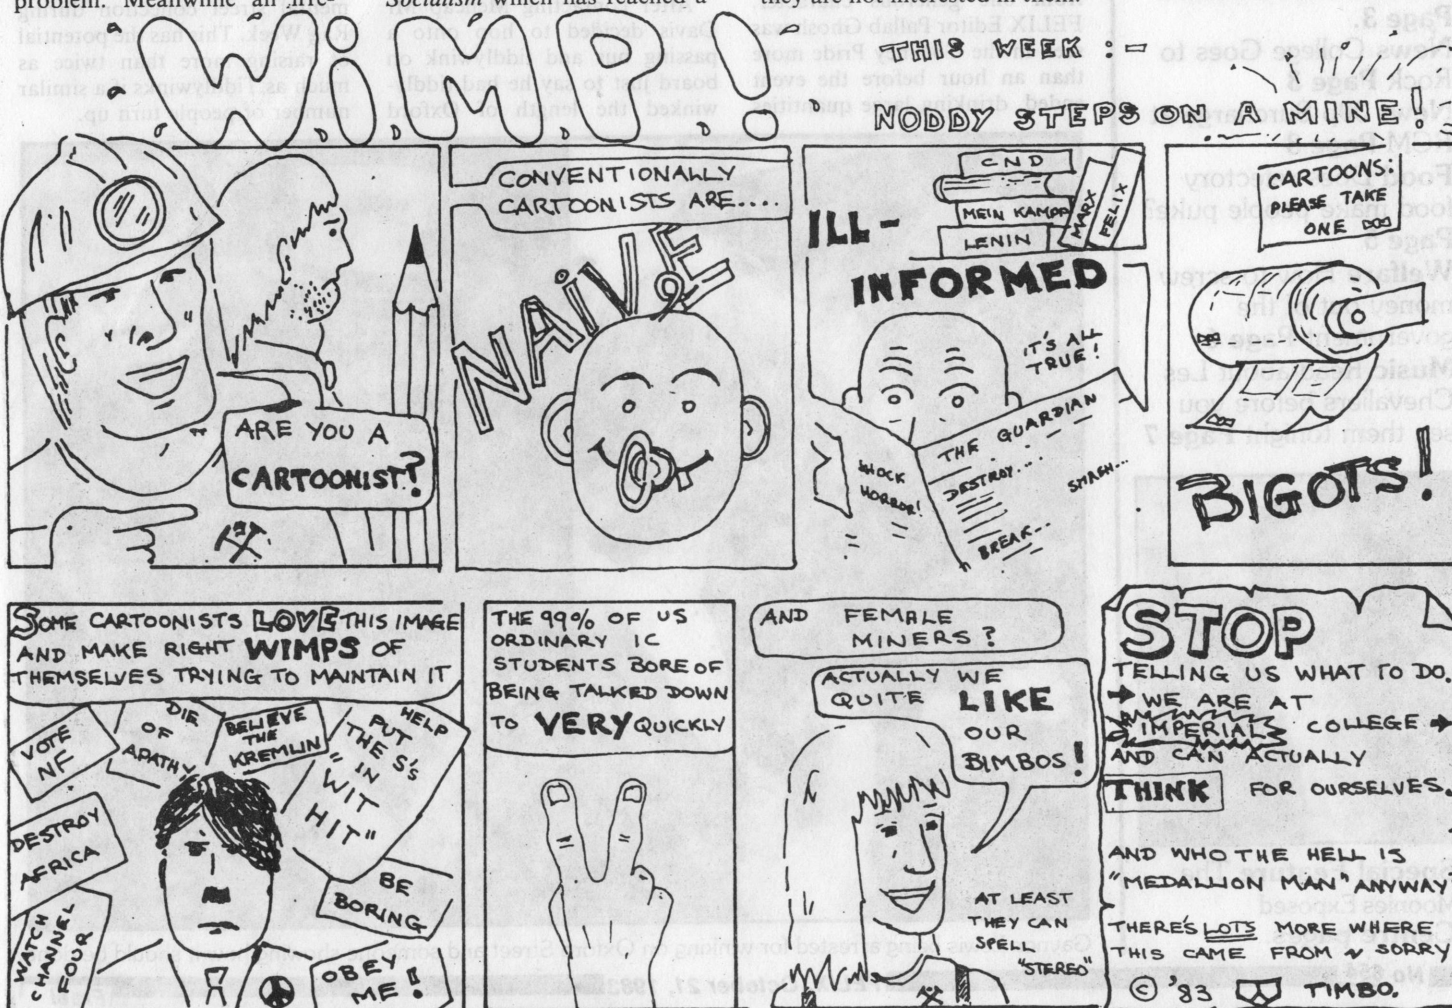 problem. Meanwhile an
Socialism which has reached a
THIS WEEK :-
NODDY STEPS ON A MINE!
ARE YOU A
CARTOONIST?
CONVENTIONALLY
CARTOONISTS ARE....
NAIVE
ILL-
INFORMED
CND
MEIN KAMPF
LENIN
MARX
FELIX
IT'S ALL
TRUE!
SHOCK
HORROR!
THE GUARDIAN
DESTROY...
SMASH...
BREAK..
CARTOONS:
PLEASE TAKE
ONE
BIGOTS!
SOME CARTOONISTS LOVE THIS IMAGE
AND MAKE RIGHT WIMPS OF
THEMSELVES TRYING TO MAINTAIN IT
VOTE
NF
DIE
OF
APATHY
BELIEVE
THE
KREMLIN
HELP
PUT
THE S's
IN
"WIT
HIT"
DESTROY
AFRICA
WATCH
CHANNEL
FOUR
BE
BORING
OBEY
ME!
THE 99% OF US
ORDINARY IC
STUDENTS BORE OF
BEING TALKED DOWN
TO VERY QUICKLY
AND FEMALE
MINERS?
ACTUALLY WE
QUITE LIKE
OUR
BIMBOS!
AT LEAST
THEY CAN
SPELL
"STEREO"
STOP
TELLING US WHAT TO DO.
WE ARE AT
IMPERIAL COLLEGE
AND CAN ACTUALLY
THINK FOR OURSELVES.
AND WHO THE HELL IS
"MEDALLION MAN" ANYWAY
THERE'S LOTS MORE WHERE
THIS CAME FROM SORRY
© '83 TIMBO.